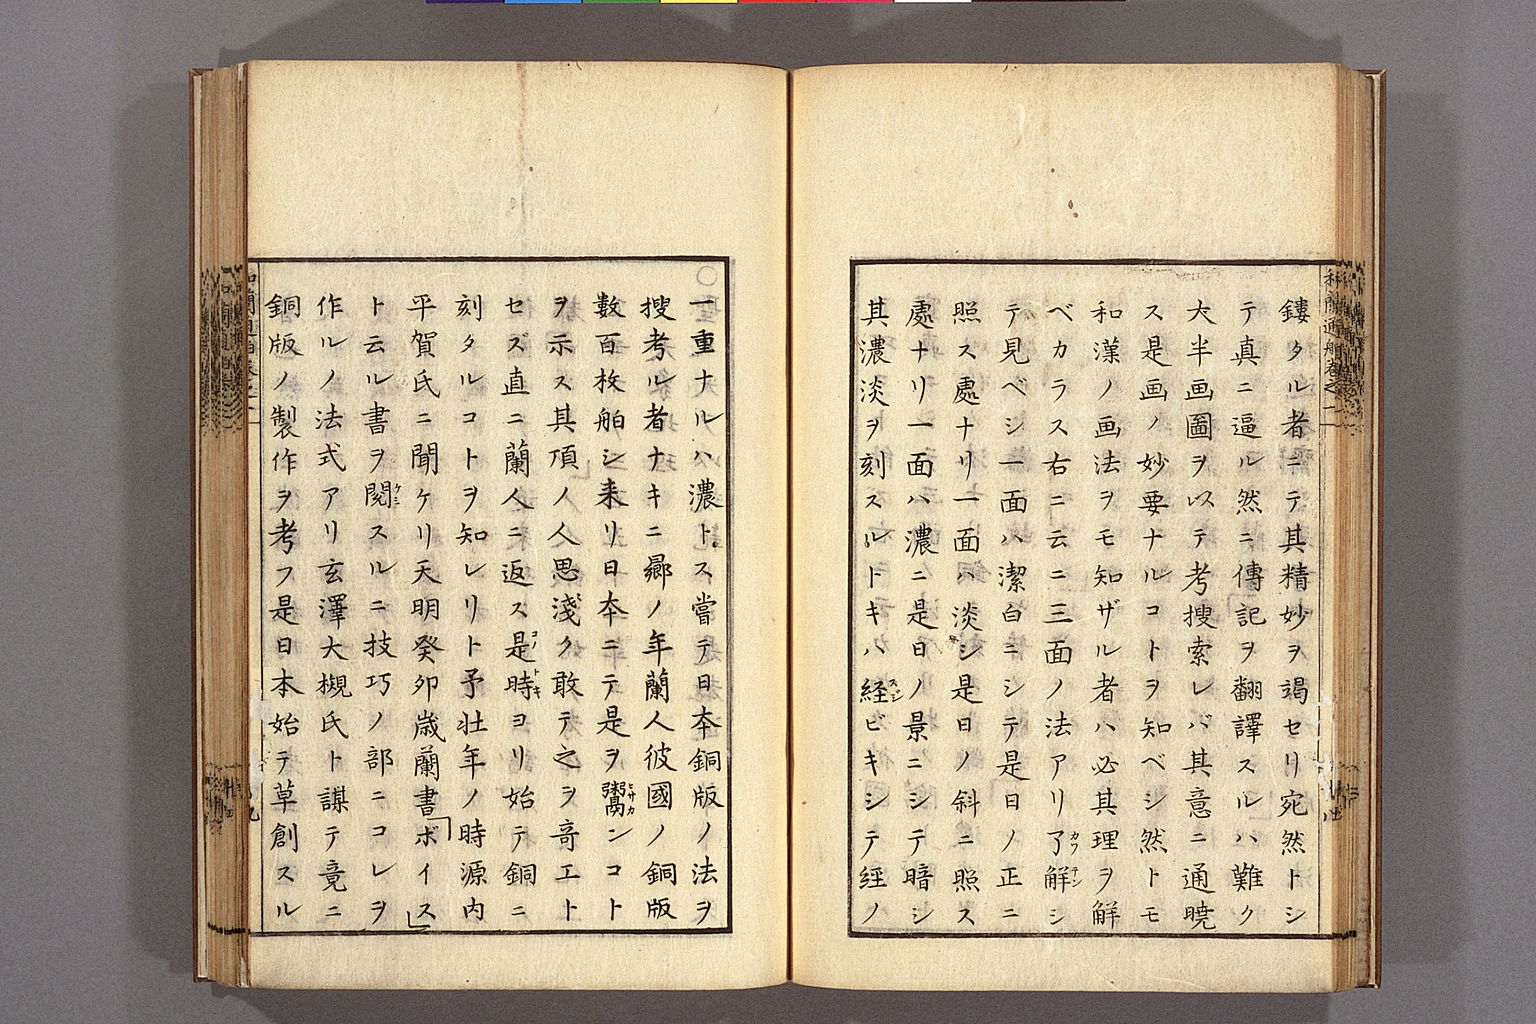 和蘭通舶巻之二
鏤タル者ニテ其精妙ヲ竭セリ宛然トシ
テ真ニ逼ル然ニ傳記ヲ翻譯スルハ難ク
大半画圖ヲ以テ考搜索レバ其意ニ通曉
ス是画ノ妙要ナルコトヲ知ベシ然トモ
和漢ノ画法ヲモ知ザル者ハ必其理ヲ解
ベカラス右ニ云ニ三面ノ法アリ了解シ
カツテン
テ見ベシ一面ハ潔白ニシテ是日ノ正ニ
照ス處ナリ一面ハ淡シ是日ノ斜ニ照ス
處ナリ一面ハ濃ニ是日ノ景ニシテ暗シ
其濃淡ヲ刻スルトキハ経ビキシテ経ノ
スジ
一重ナルハ濃トス嘗テ日本銅版ノ法ヲ
搜考ル者ナキニ曏ノ年蘭人彼國ノ銅版
數百枚舶シ来リ日本ニテ是ヲ鬻ンコト
ヒサカ
ヲ示ス其頂ノ人人思淺ク敢テ之ヲ竒工ト
セズ直ニ蘭人ニ返ス是時ヨリ始テ銅ニ
コノトキ
刻タルコトヲ知レリト予壮年ノ時源内
平賀氏ニ聞ケリ天明癸卯歳蘭書ボイス
ト云ル書ヲ閲スルニ技巧ノ部ニコレヲ
ケミ
作ルノ法式アリ玄澤大槻氏ト謀テ竟ニ
銅版ノ製作ヲ考フ是日本始テ草創スル